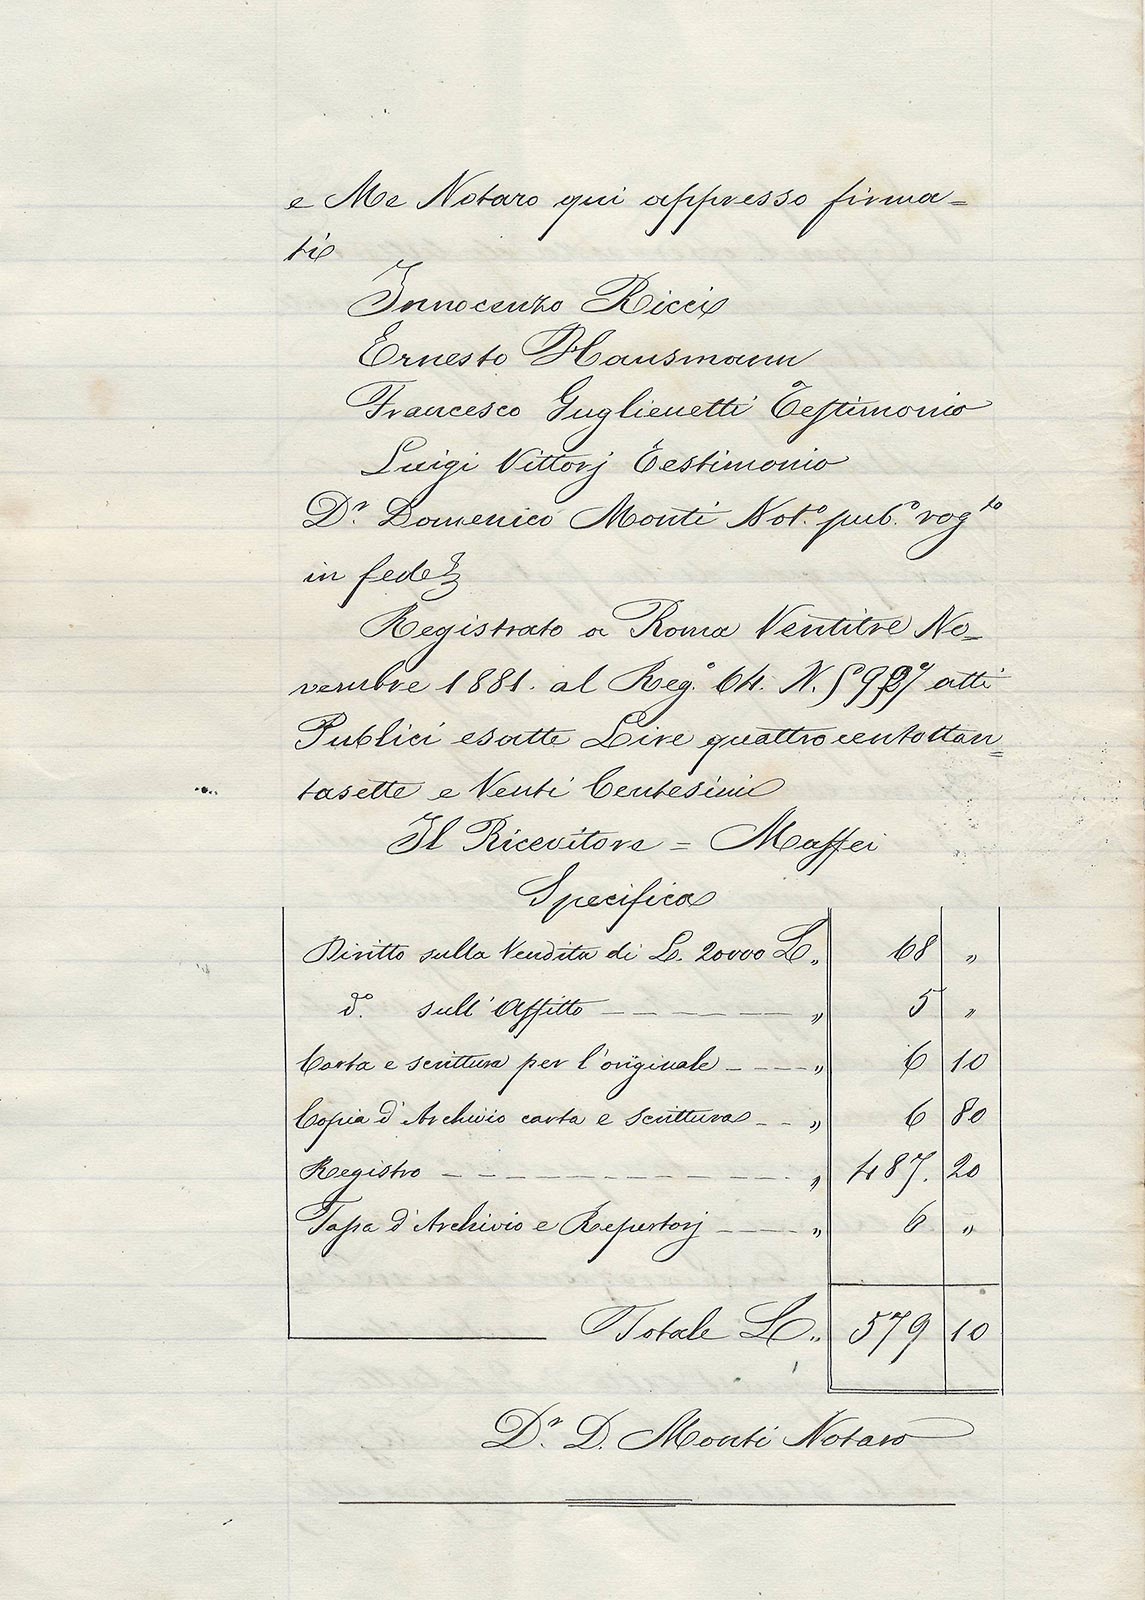 e Me Notaro qui appresso firma=
ti
Innocenzo Ricci
Ernesto Hausmann
Francesco Guglienetti Testimonio
Luigi Vittorj Testimonio
Dr. Domenico Monti Not.o pub.o rog.to
in fede
Registrato a Roma Ventitre No_
vembre 1881. al Reg.o 64. N. atti
Publici esatte Lire quattrocentottan=
tasette e Venti Centesimi
Il Ricevitore = Maffei
Specifica
Diritto sulla Vendita di L. 20000 L. „ 68 „
d.o sull' Affitto — — — — — „ 5 „
Carta e scrittura per l'originale — — — „ 6 10
Copia d'Archivio carta e scrittura — — „ 6 80
Registro — — — — — — — — „ 487. 20
Tassa d'Archivio e Repertorj — — — „ 6 „
Totale L. „ 579 10
Dr. D. Monti Notaro